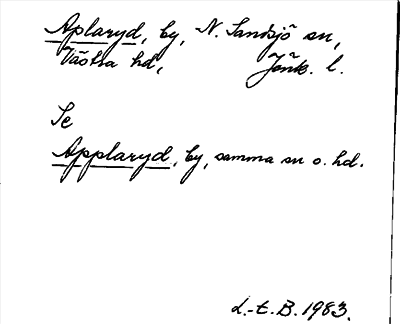 Aplaryd, by, N. Sandsjö sn,
Västra hd, Jönk. l.
Se
Applaryd, by, samma sn o. hd.
L.-E. B. 1983.